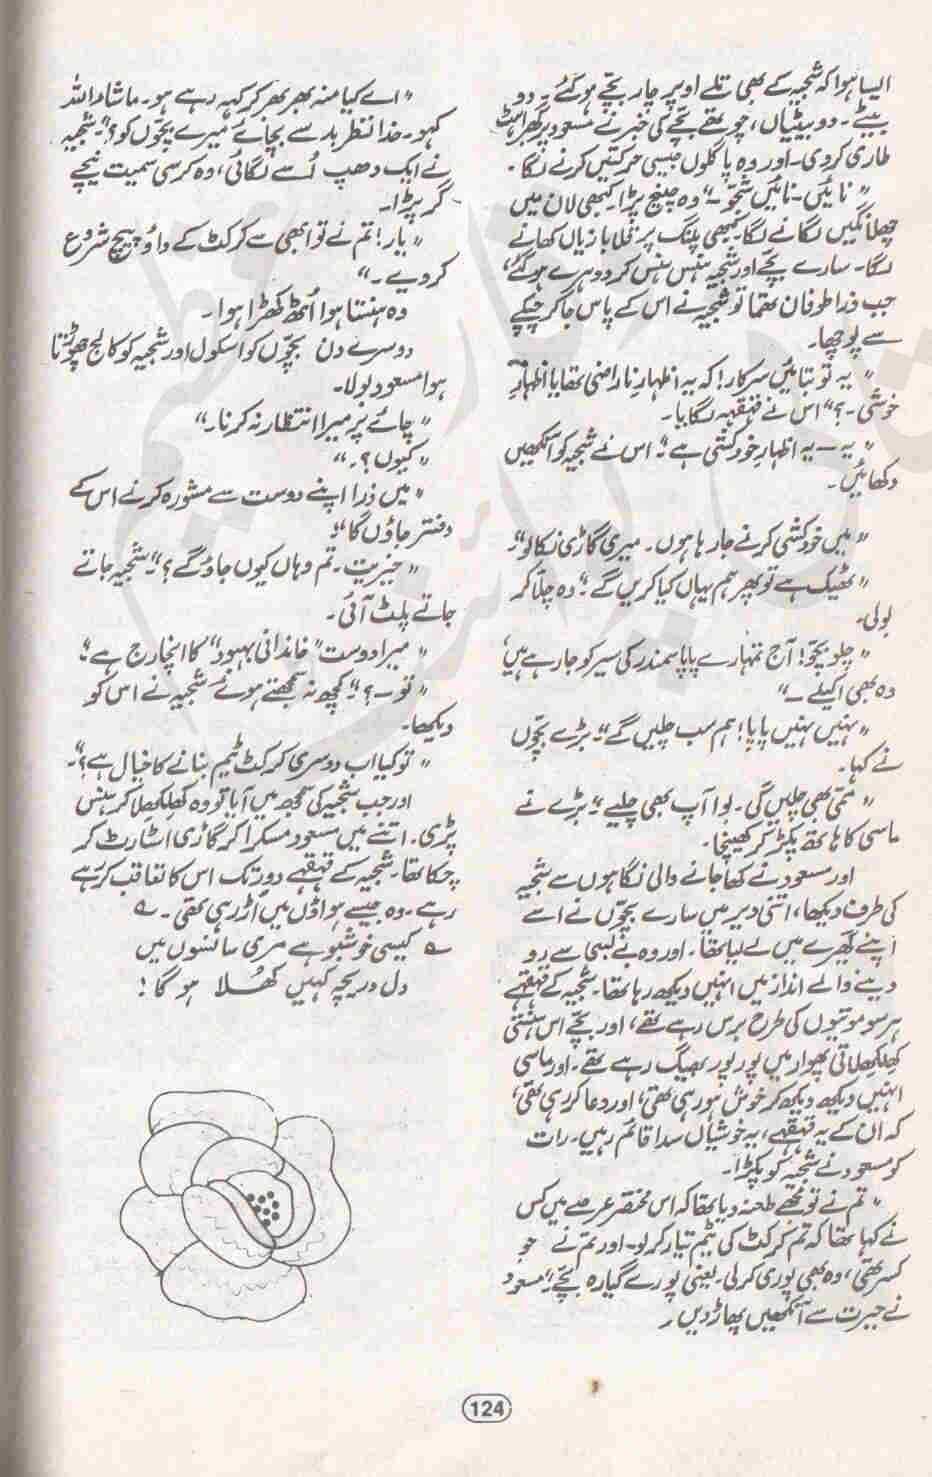 ایسا ہوا کہ شجیہ کے بھی تلے اوپر چار بچے ہو گئے۔ دو
بیٹے۔ دو بیٹیاں، چوتھے بچے کی خبر نے مسعود پر گھبراہٹ
طاری کر دی۔ اور وہ پاگلوں جیسی حرکتیں کرنے لگا۔
"نائیں۔ نائیں شجو۔" وہ چیخ پڑا کبھی لان میں
چھلانگیں لگانے لگا۔ کبھی پلنگ پر قلابازیاں کھانے
لگا۔ سارے بچے اور شجیہ ہنس ہنس کر دوہرے ہو گئے،
جب ذرا طوفان تھما تو شجیہ نے اس کے پاس جا کر چپکے
سے پوچھا۔
"یہ تو بتائیں سرکار! کہ یہ اظہارِ ناراضی تھا یا اظہارِ
خوشی۔؟" اس نے قہقہہ لگایا۔
"یہ — یہ اظہارِ خودکشی ہے"۔ اس نے شجیہ کو آنکھیں
دکھائیں۔
"میں خودکشی کرنے جا رہا ہوں۔ میری گاڑی نکالو"۔
"ٹھیک ہے تو پھر ہم یہاں کیا کریں گے"۔ وہ چلا کر
بولی۔
"چلو بچو! آج تمہارے پاپا سمندر کی سیر کو جا رہے ہیں،
وہ بھی اکیلے ۔"
"نہیں نہیں پاپا! ہم سب چلیں گے"۔ بڑے بچوں
نے کہا۔
"ممی بھی چلیں گی۔ بوا آپ بھی چلیے"۔ بڑے نے
ماسی کا ہاتھ پکڑ کر کھینچا۔
اور مسعود نے کھا جانے والی نگاہوں سے شجیہ
کی طرف دیکھا، اتنی دیر میں سارے بچوں نے اسے
اپنے گھیرے میں لے لیا تھا۔ اور وہ بے بسی سے رو
دینے والے انداز میں انہیں دیکھ رہا تھا۔ شجیہ کے قہقہے
ہر سو موتیوں کی طرح برس رہے تھے، اور بچے اس ہنستی
کھلکھلاتی پھوار میں پور پور بھیگ رہے تھے۔ اور ماسی
انہیں دیکھ دیکھ کر خوش ہو رہی تھی، اور دعا کر رہی تھی،
کہ ان کے یہ قہقہے، یہ خوشیاں سدا قائم رہیں۔ رات
کو مسعود نے شجیہ کو پکڑا۔
"تم نے تو مجھے طعنہ دیا تھا کہ اس مختصر عرصے میں کس
نے کہا تھا کہ تم کرکٹ کی ٹیم تیار کر لو۔ اور تم نے جو
کسر تھی، وہ بھی پوری کر لی۔ یعنی پورے گیارہ بچے"۔ مسعود
نے حیرت سے آنکھیں پھاڑ دیں۔
"اے کیا منہ بھر بھر کر کہہ رہے ہو۔ ماشاء اللہ
کہو۔ خدا نظرِ بد سے بچائے میرے بچوں کو؟"۔ شجیہ
نے ایک دھپ اسے لگائی، وہ کرسی سمیت نیچے
گر پڑا۔
"یار! تم نے تو ابھی سے کرکٹ کے داؤ پیچ شروع
کر دیے۔"
وہ ہنستا ہوا اُٹھ کھڑا ہوا۔
دوسرے دن بچوں کو اسکول اور شجیہ کو کالج چھوڑتا
ہوا مسعود بولا۔
"چائے پر میرا انتظار نہ کرنا۔"
"کیوں؟۔"
"میں ذرا اپنے دوست سے مشورہ کرنے اس کے
دفتر جاؤں گا"۔
"خیریت۔ تم وہاں کیوں جاؤ گے؟"۔ شجیہ جاتے
جاتے پلٹ آئی۔
"میرا دوست "خاندانی بہبود" کا انچارج ہے"۔
"تو۔؟" کچھ نہ سمجھتے ہوئے شجیہ نے اس کو
دیکھا۔
"تو کیا اب دوسری کرکٹ ٹیم بنانے کا خیال ہے؟"۔
اور جب شجیہ کی سمجھ میں آیا تو وہ کھلکھلا کر ہنس
پڑی۔ اتنے میں مسعود مسکرا کر گاڑی اسٹارٹ کر
چکا تھا۔ شجیہ کے قہقہے دور تک اس کا تعاقب کرتے
رہے۔ وہ جیسے ہواؤں میں اُڑ رہی تھی۔ ؎
؎ کیسی خوشبو ہے مری سانسوں میں
دل دریچہ کہیں کھُلا ہو گا!
124